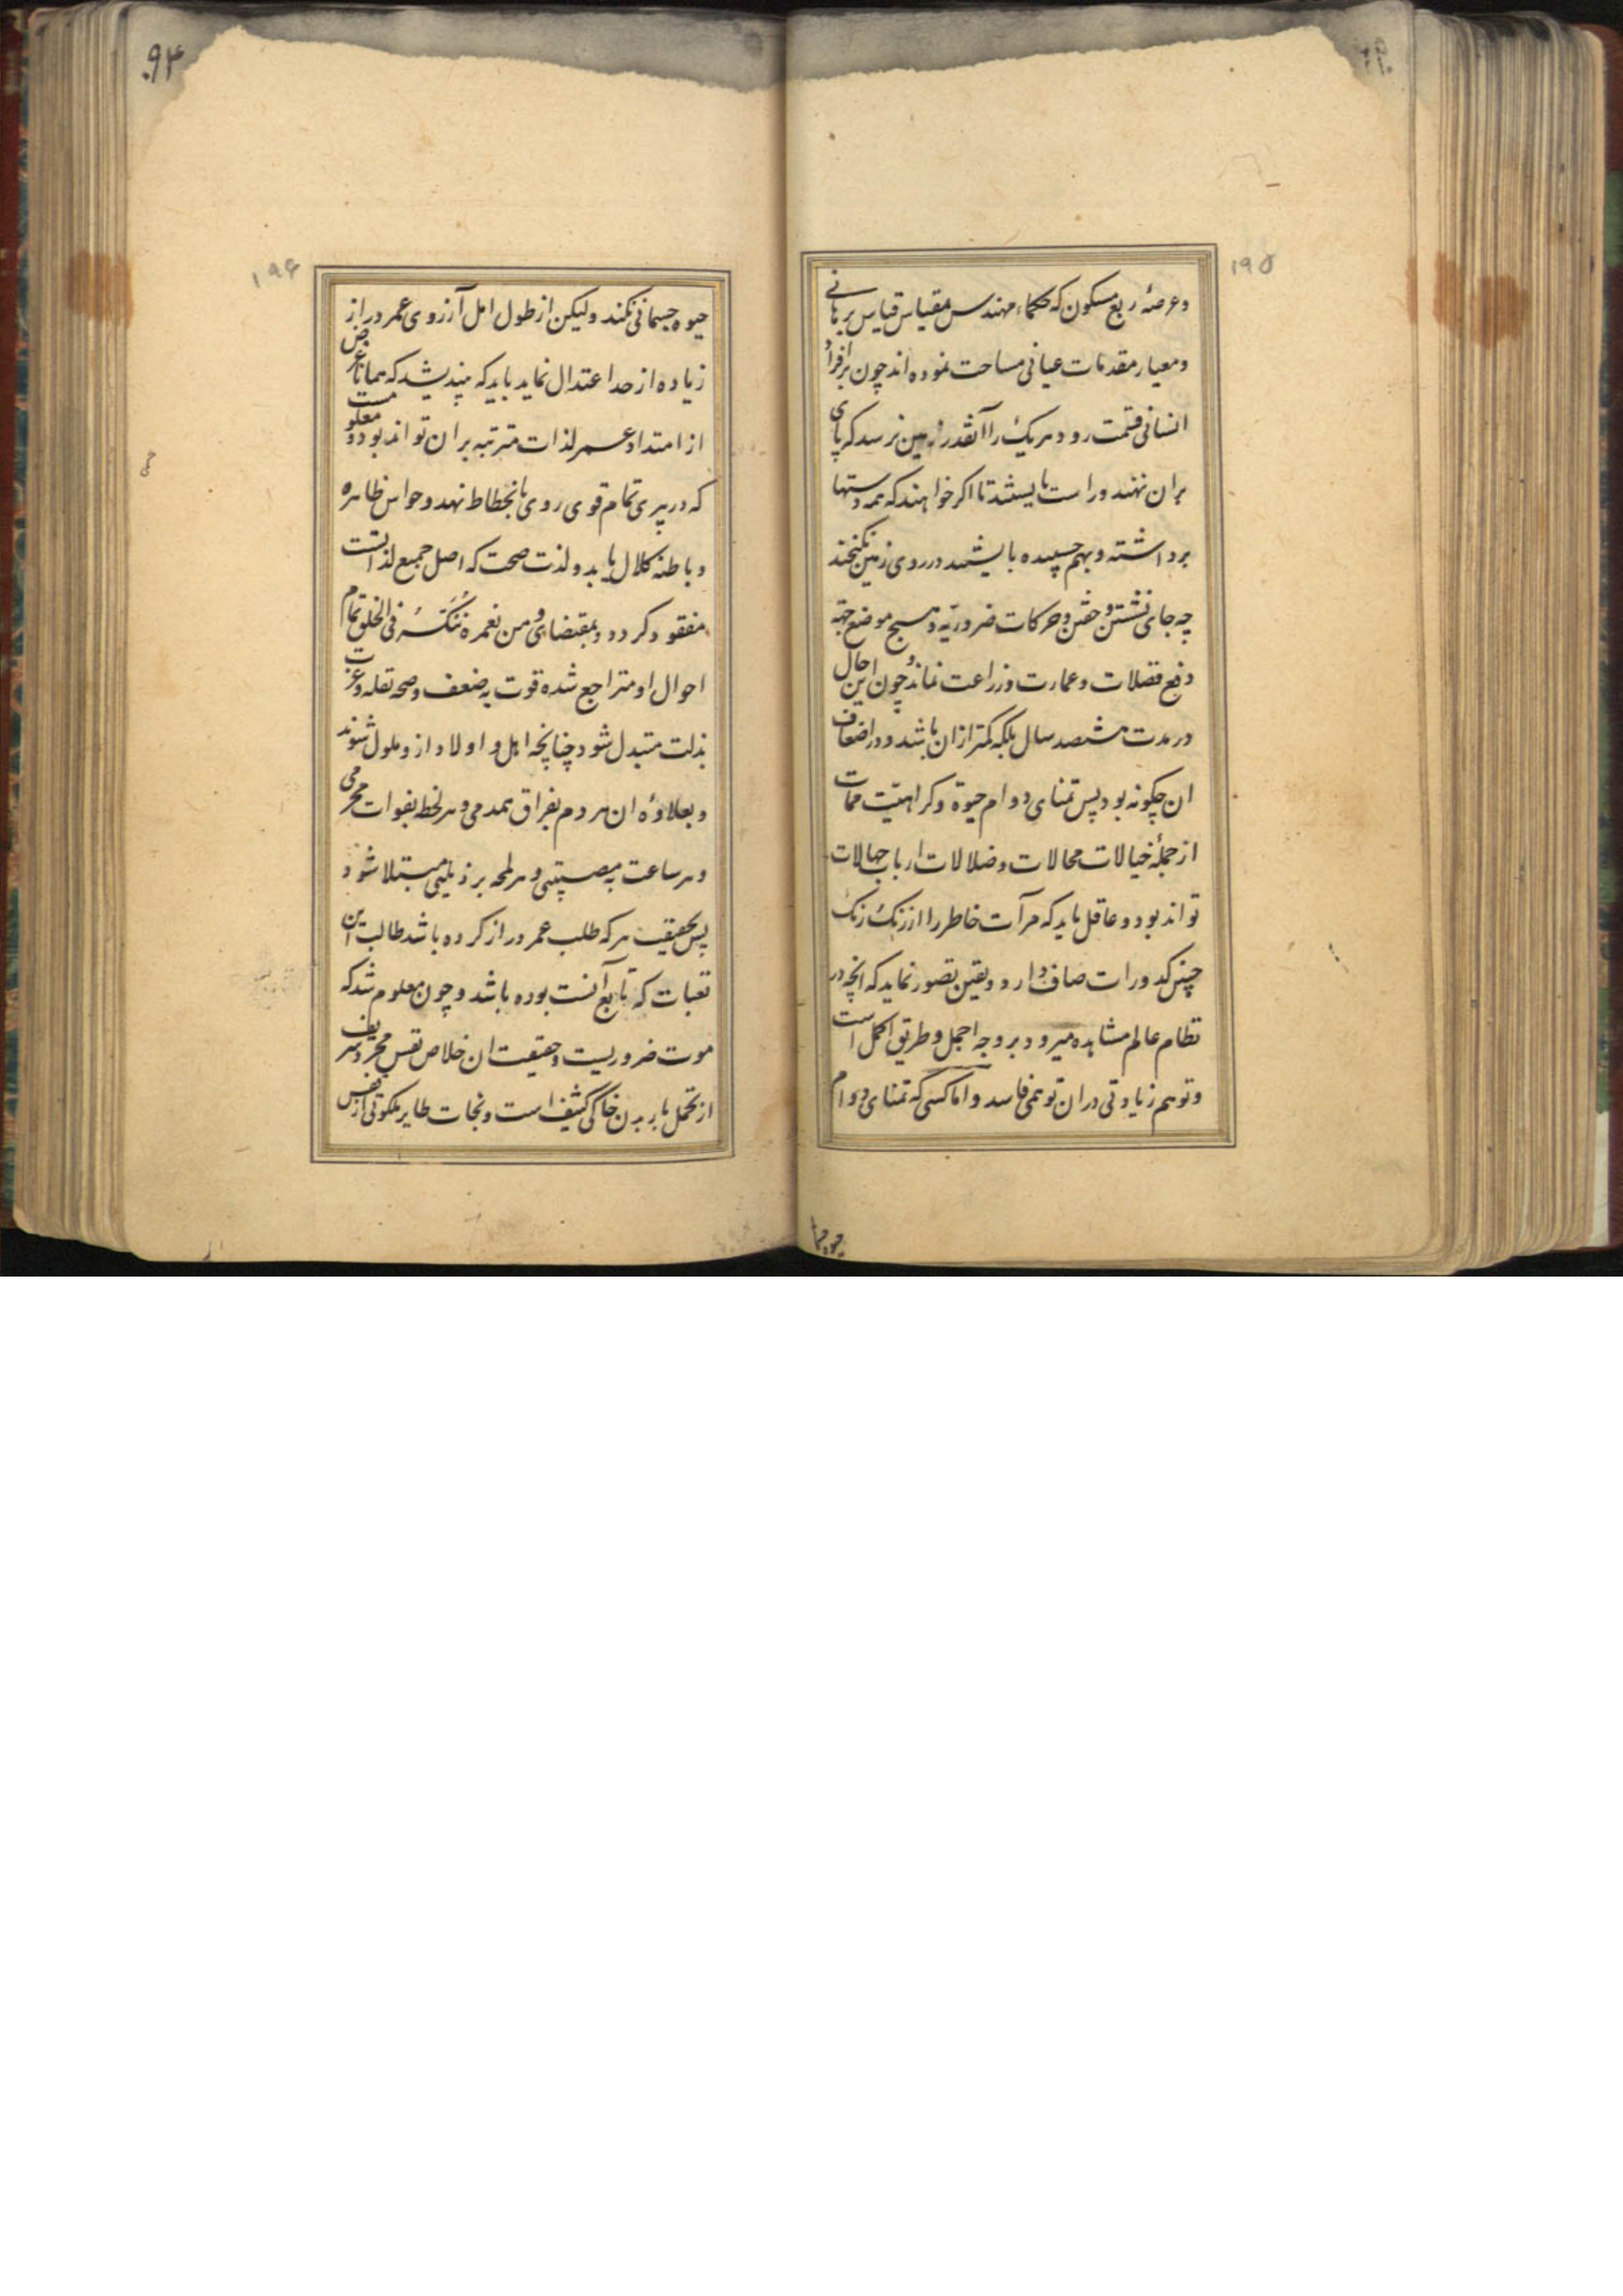 ۱۹۵
وعرصهٔ ربع مسکون که حکماء مهندس بمقیاس قیاس برهانی
ومعیار مقدمات عیانی مساحت نموده اند چون بر افراد
انسانی قسمت رود هریک را آنقدر زمین نرسد که پای
بران نهند وراست بایستند تا اکر خواهند که همه دستها
برداشته وبهم چسپیده بایستند در روی زمین نکنجند
چه جای نشستن وخفتن وحرکات ضروریّه وهیچ موضع جهة
دفع فضلات وعمارت وزراعت نماند وچون این حال
در مدت هشتصد سال بلکه کمتر ازان باشد ودر اضعاف
ان چکونه بود پس تمنای دوام حیوة وکراهیّت ممات
از جملهٔ خیالات محالات وضلالات ارباب جهالات
تواند بود وعاقل باید که مرآت خاطر را از زنک
چنین کدورات صاف دارد ویقین تصور نماید که انچه در
نظام عالم مشاهده میرود بر وجه اجمل وطریق اکمل است
وتوهم زیادتی دران توهمی فاسد واما کسی که تمنای دوام
۰۹۴
۱۹۶
حیوه جسمانی نکند ولیکن از طول امل آرزوی عمر دراز
زیاده از حد اعتدال نماید باید که بیندیشد که همانا غرض
از امتداد عمر لذات مترتبه بران تواند بود ومعلومست
که در پیری تمام قوی روی بانحطاط نهد وحواس ظاهره
وباطنه کلال یابد ولذت صحت که اصل جمیع لذاتست
مفقود کردد وبمقتضای ومن نعمره ننکسه فی الخلق تمام
احوال او متراجع شده قوت به ضعف وصحه بعله وعزت
بذلت متبدل شود چنانچه اهل واولاد ازو ملول شوند
وبعلاوهٔ ان هر دم بفراق همدمی وهر لحظه بفوات محرمی
وهر ساعت به مصیبتی وهر لمحه برذیلتی مبتلا شود
پس بحقیقت هرکه طلب عمر دراز کرده باشد طالب این
تعبات که تابع آنست بوده باشد وچون معلوم شد که
موت ضروریست وحقیقت ان خلاص نفس مجرد شریف
از تحمل بار بدن خاکی کثیف است ونجات طایر ملکوتی از قفس